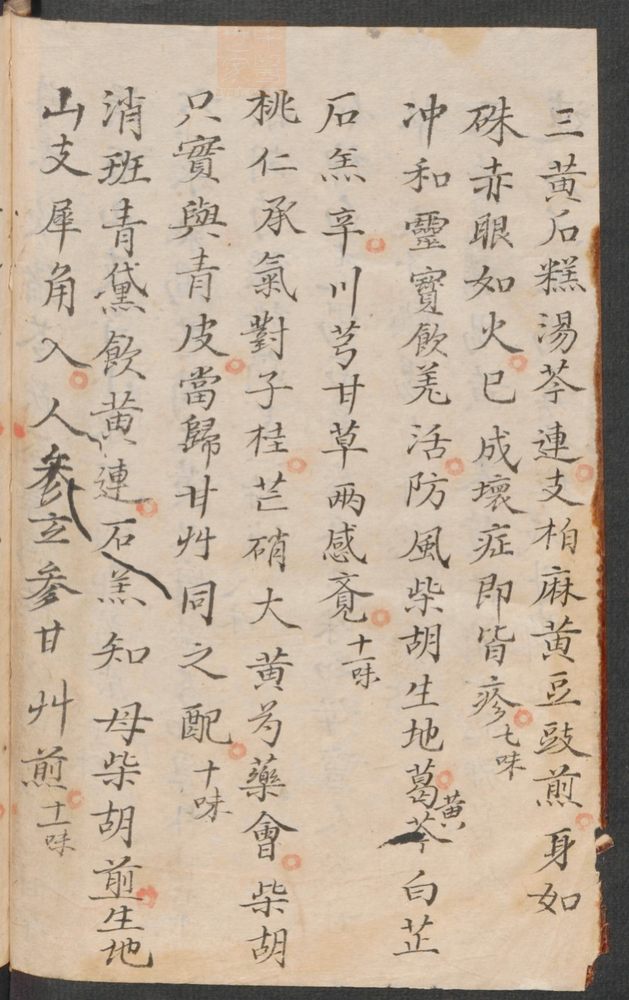 三黃石糕湯芩連支柏麻黃豆豉煎身如
硃赤眼如火已成壞症即皆疹七味
冲和靈寳飲羌活防風柴胡生地葛黃芩白芷
石羔辛川芎甘草兩感竟十一味
桃仁承氣對子桂芒硝大黃芍藥會柴胡
只實與青皮當歸甘艸同之配十味
消班青黛飲黃連石羔知母柴胡煎生地
山支犀角入人參玄參甘艸煎十一味